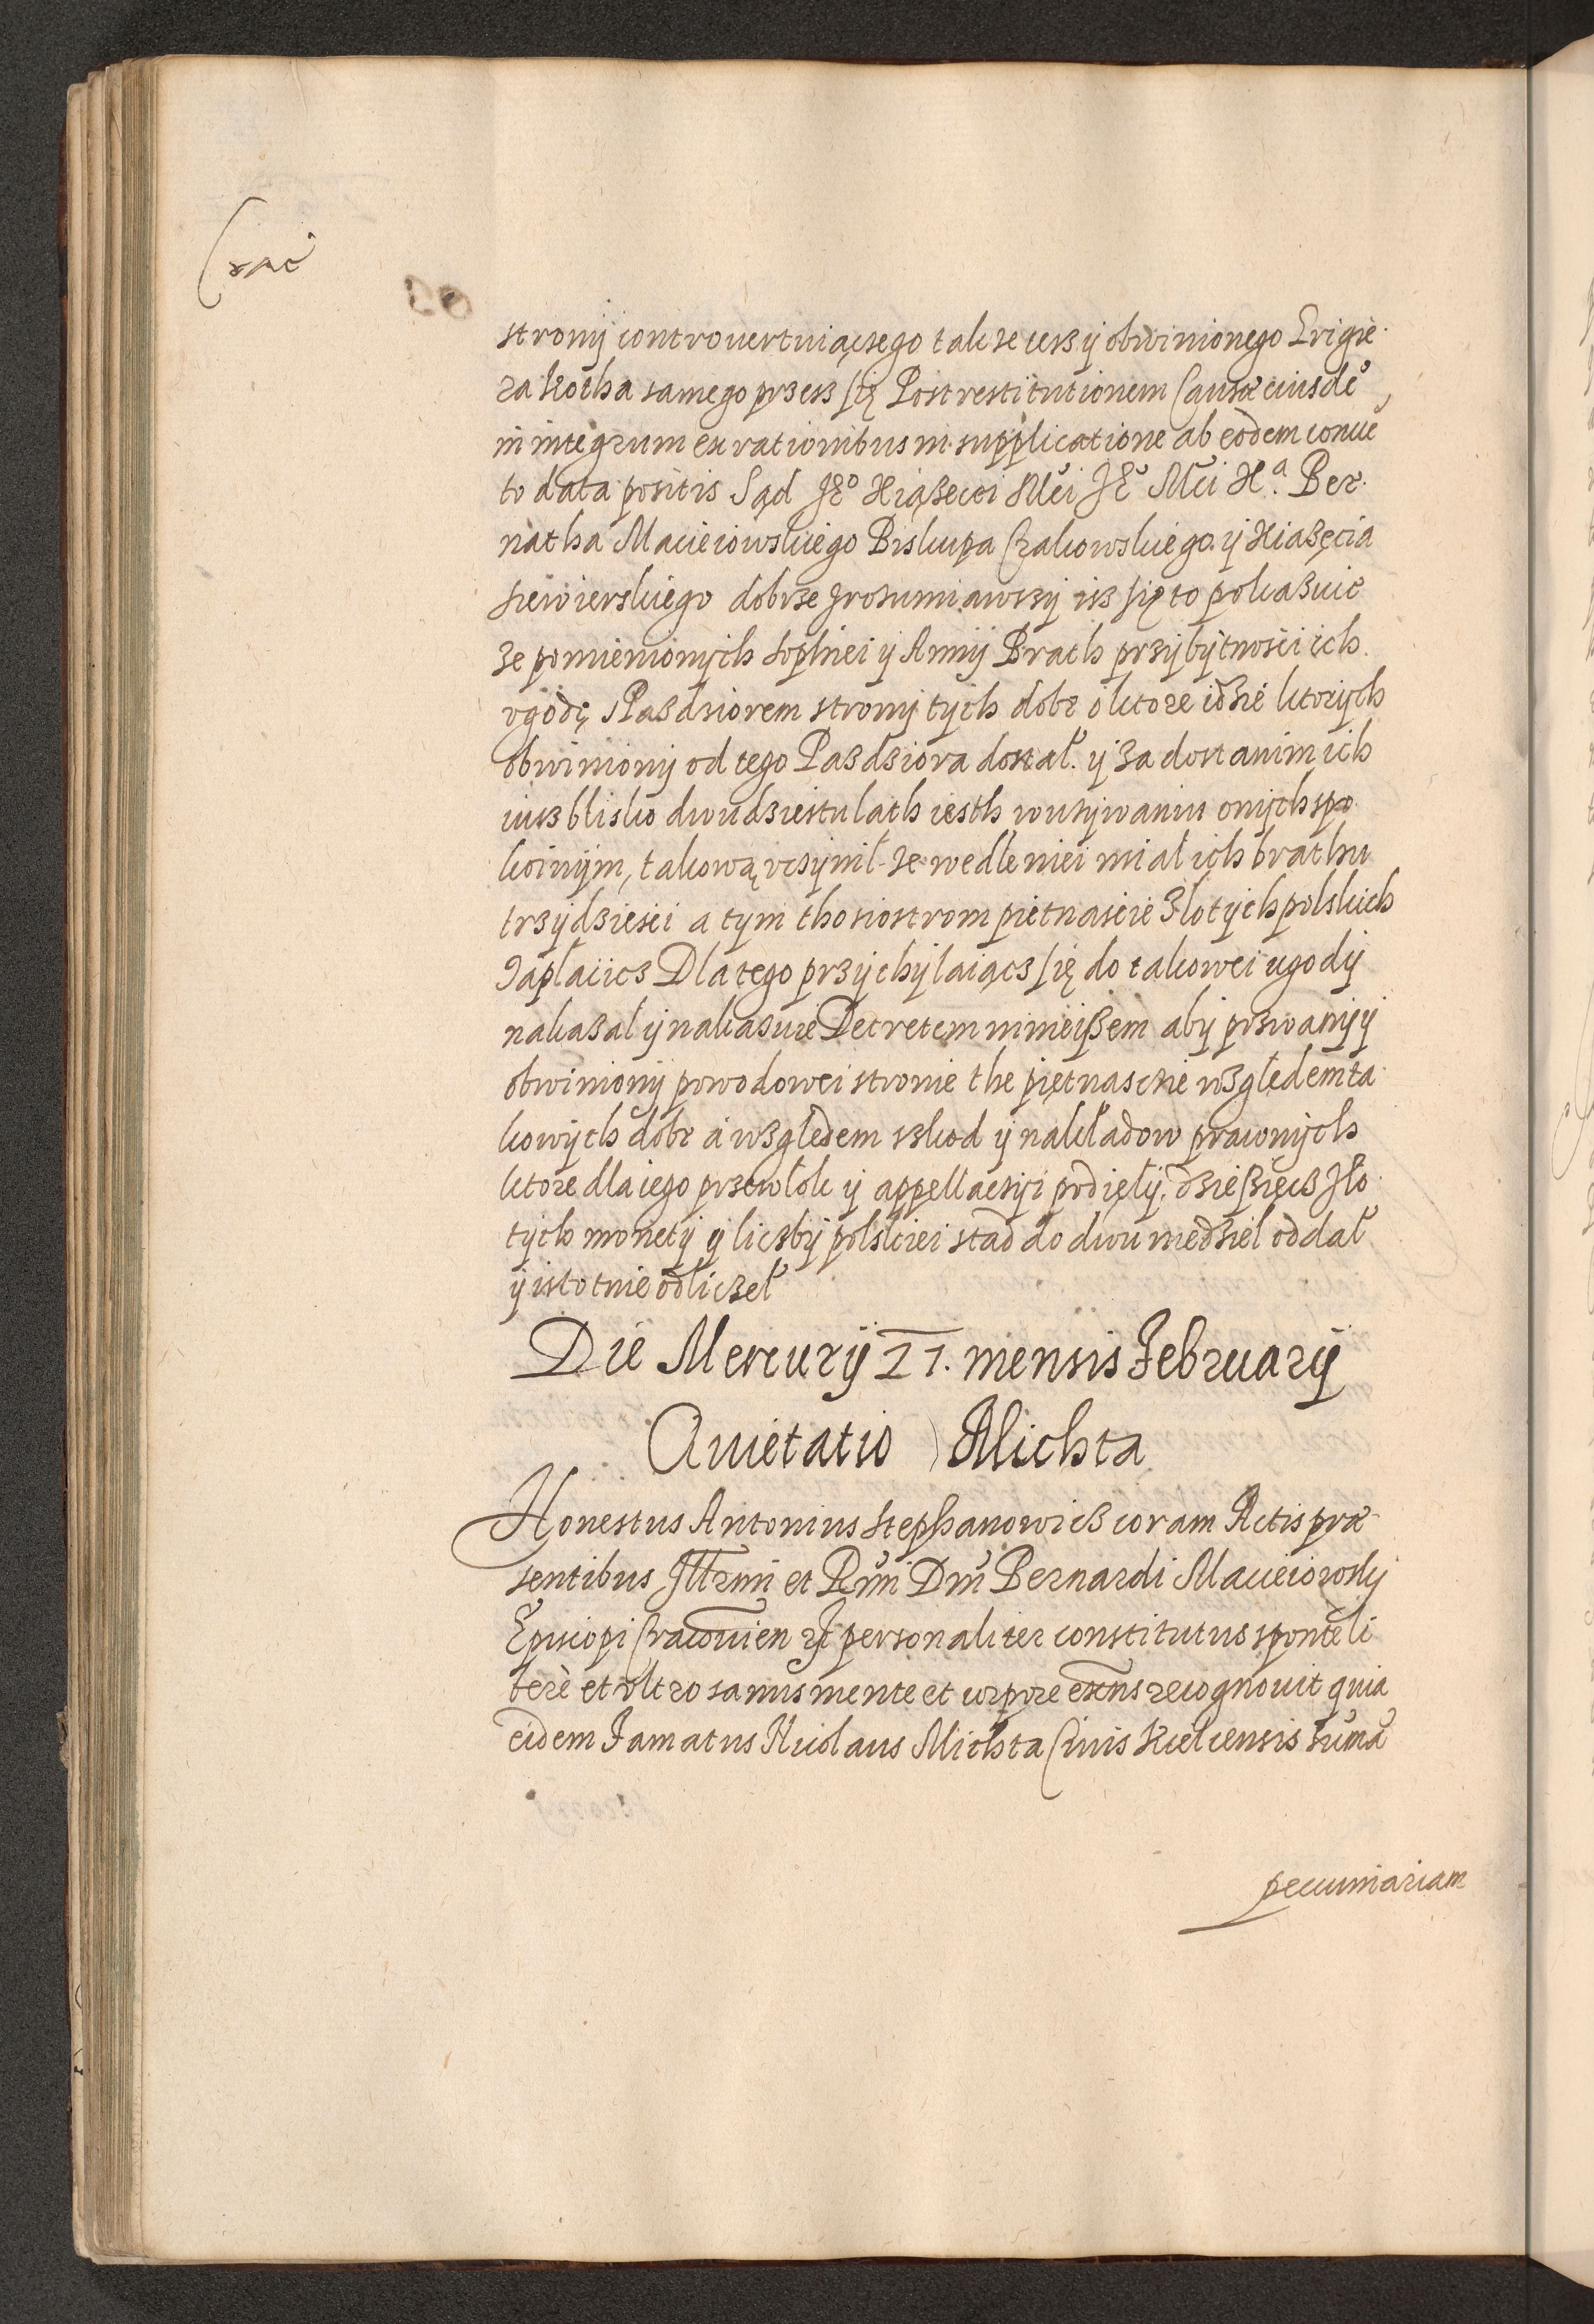 strony controuertuiączego takze tesz y obwinionego Grigie-
ra Kotha samego przesz się Post restitutionem Causæ eiusdē
in integrum ex rationibus in supplicatione ab eodem conuē
to data positis Sąd Je° Xiąsęcei Mci Jē Mci X.ª Ber-
natha Macieiowskiego Biskupa Crakowskiego y Xiasęcia
Siewierskiego dobrze zrosumiawszy isz się to pokasuie
ze pomienionych Sophiei y Anny Brath przy bytnosci ich
ugodę s Pasdziorem strony tych dobr o ktore idzie ktorych
obwiniony od tego Pazdziora dostał. y za dostanim ich
iusz blisko dwudziestu lath iesth w uzywaniu onych spo
koinym, takową uczynil ze wedle niei miał ich brathu
trzydziesci a tym tho siostrom pietnascie złotych polskich
zapłacicz Dla tego przychylaiącz się do takowei ugody
nakazal y nakasuie Decretem ninieiszem aby przwany y
obwiniony powodowei stronie the piętnascie wzgledem ta
kowych dobr a wzgledem szkod y nakładow prawnych
ktore dla iego przewłok y appellacyi podięły, dziesięcz zło
tych monety y liczby polskiei stad do dwu niedziel oddał
y istotnie odliczeł
Die Mercurij 21. mensis Februarij
Quietatio Michta
Honestus Antonius Stephanowicz coram Actis præ-
sentibus Illrmi et Rmi Dni Bernardi Macieiowsky
Episcopi Cracouien personaliter constitutus sponte li
bere et ultro sanus mente et corpore exens recognouit quia
eidem Famatus Nicolaus Michta Ciuis Kielcensis sumā
pecuniariam